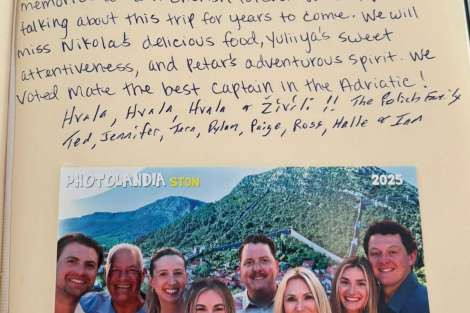 talking about this trip for years to come. We will
miss Nikola's delicious food, Yuliya's sweet
attentiveness, and Petar's adventurous spirit. We
voted Mate the best captain in the Adriatic!
Hvala, Hvala, Hvala & Živili!! The Polich Family
Ted, Jennifer, Tara, Dylan, Paige, Ross, Halle & Ian
PHOTOLANDIA STON 2025